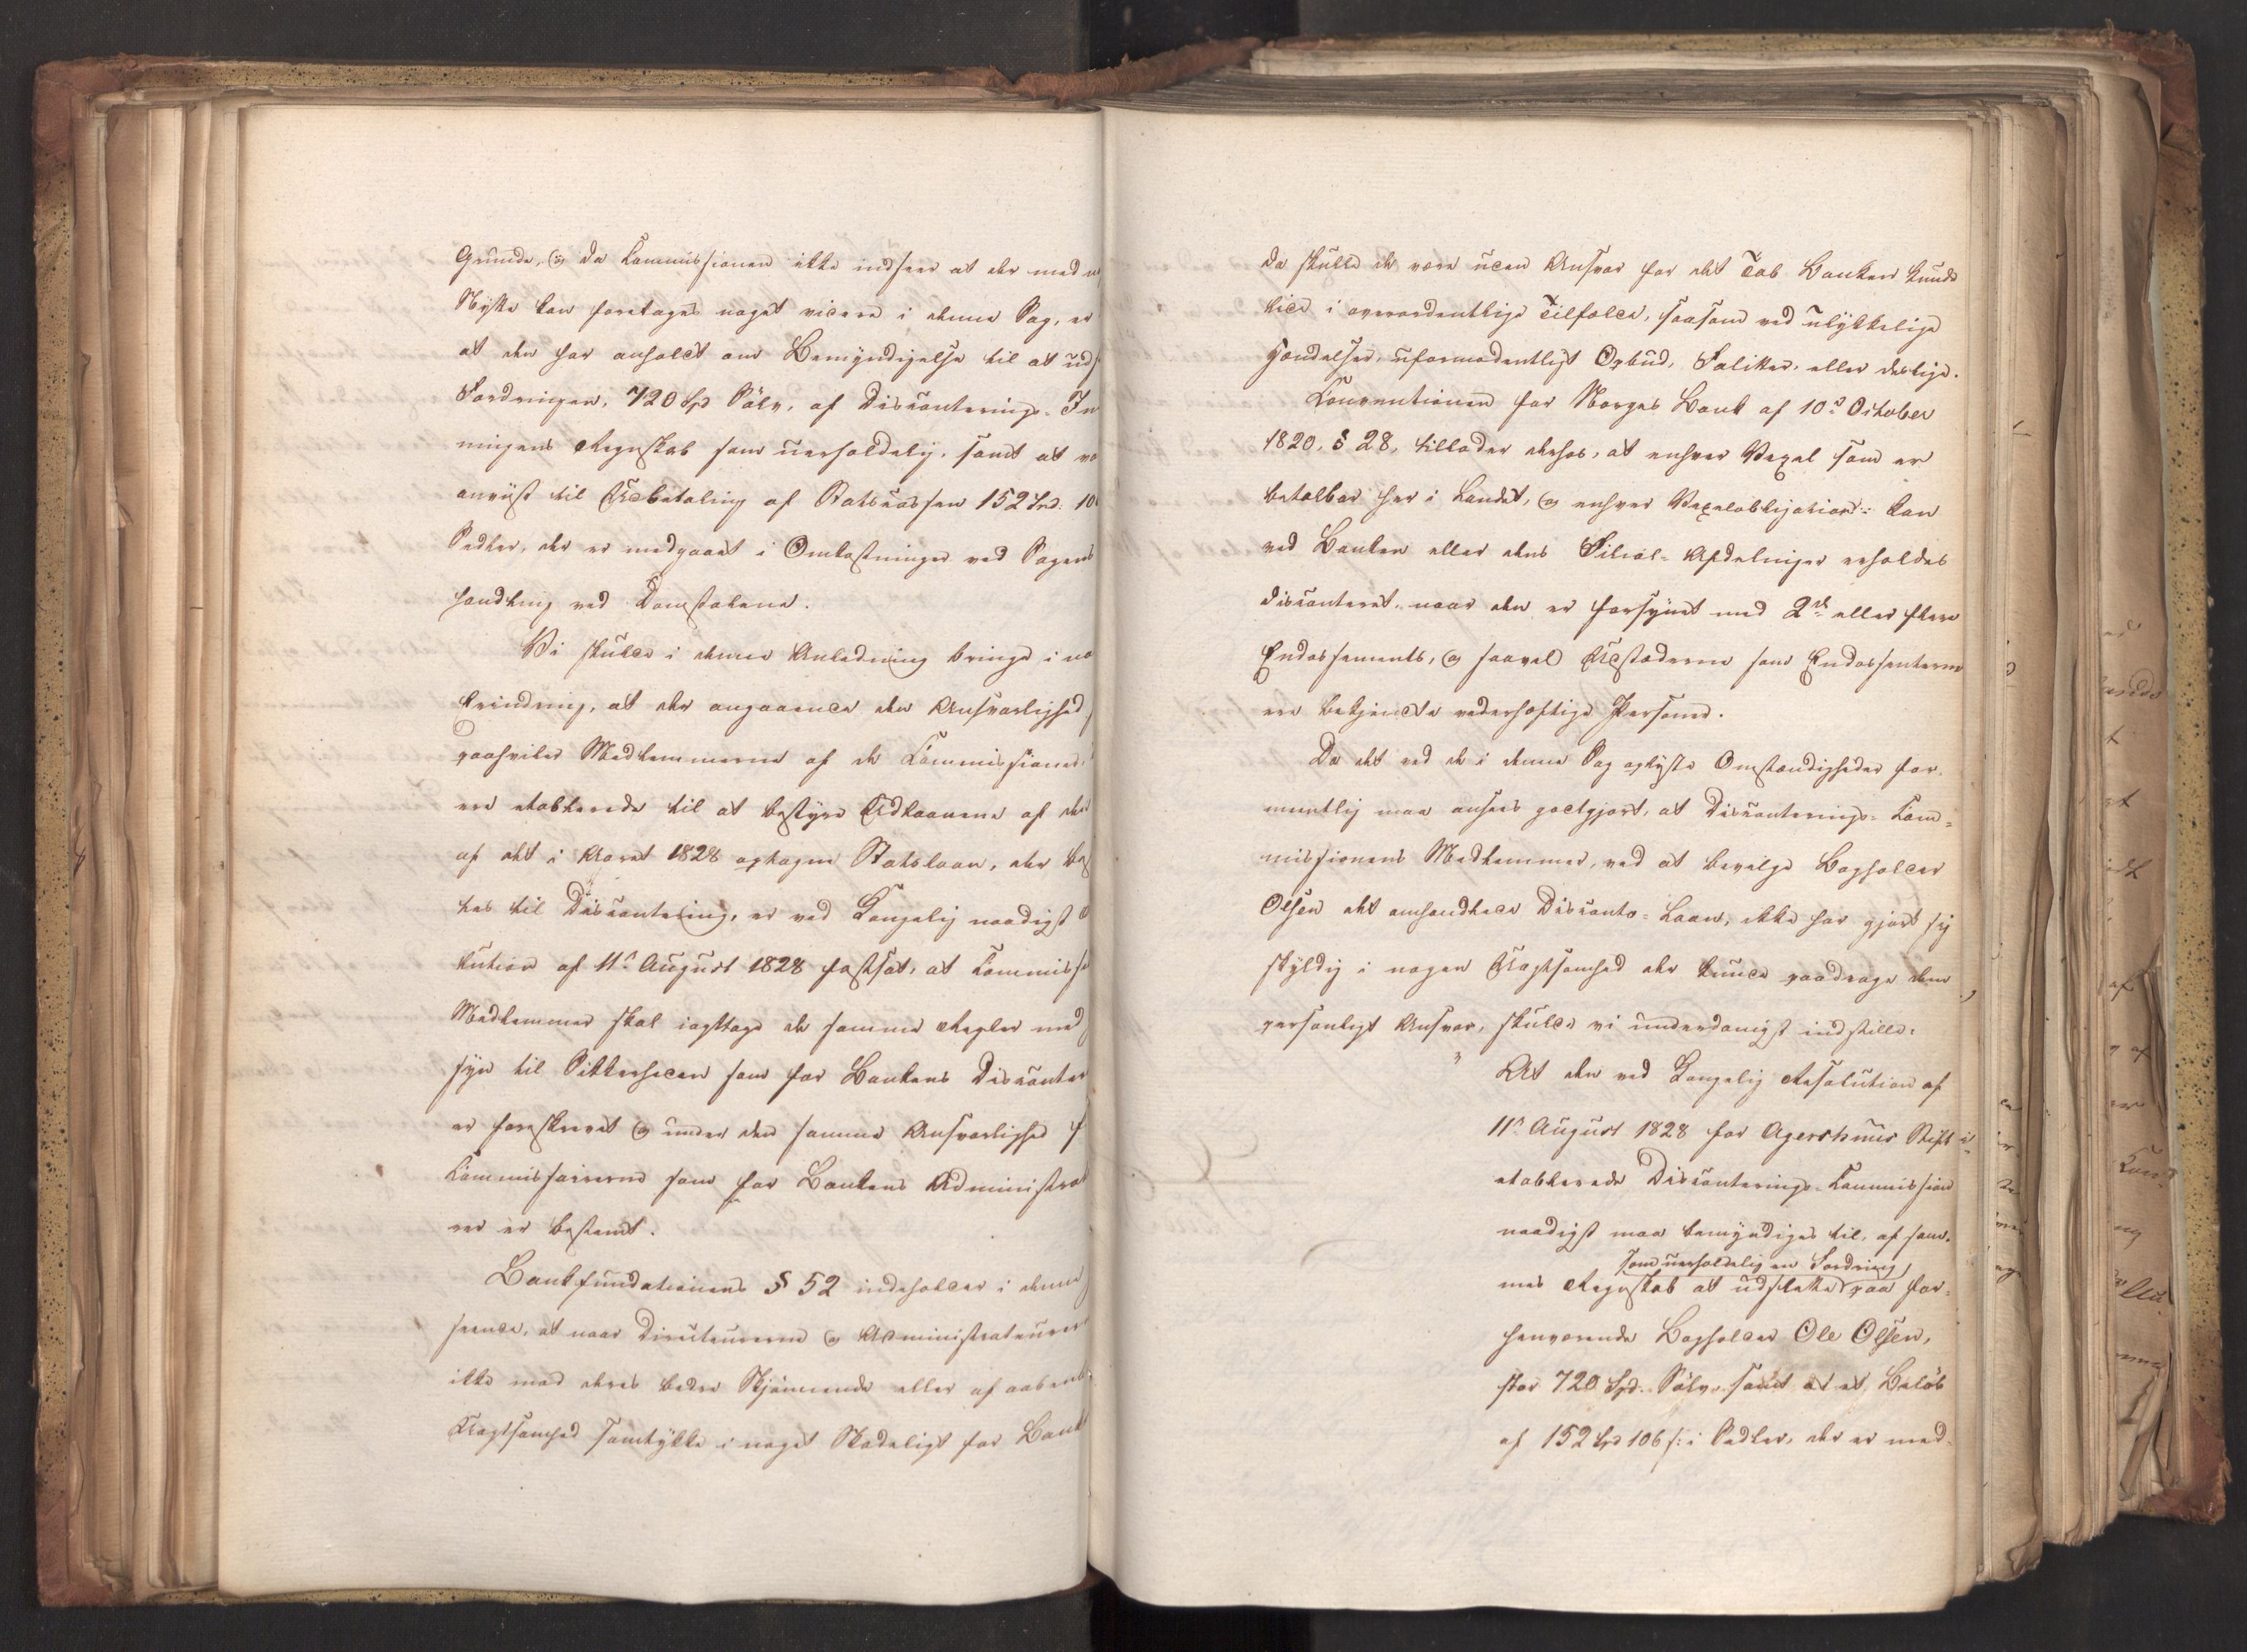 Grunde, og da Commissionen ikke indseer at der med n
Nytte kan foretages noget videre i denne Sag, er
at den har anholdt om Bemyndigelse til at uds
Fordringen, 720 Spd Sölv, af Disconterings-In
ningens Regnskab som uerholdelig, samt at vo
anviist til Udbetaling af Statskassen 152 Spd: 10
Sedler, der er medgaaet i Omkostninger ved Sagens
handling ved Domstolene.
Vi skulde i denne Anledning bringe i no
Erindring, at der angaaende den Ansvarlighed
paahviler Medlemmerne af de Commissioner,
ere etablerede til at bestyre Udlaanene af den
af det i Aaret 1828 optagne Statslaan, der bes
tes til Discontering, er ved Kongelig naadigst
lution af 11te August 1828 fastsat, at Commiss
Medlemmer skal iagttage de samme Regler med
syn til Sikkerheden som for Bankens Disconter
er foreskrevet og under den samme Ansvarlighed f
Commissairerne som for Bankens Administrat
rer er bestemt.
Bankfundationens § 52 indeholder i denne
seende, at naar Directeurerne og Administrateurer
ikke mod deres bedre Skjönnende eller af aabenb
Uagtsomhed samtykke i noget Skadeligt for Bank
da skulle de være uden Ansvar for det Tab Banken kunde
lide i overordentlige Tilfælde, saasom ved ulykkelige
Hændelser, uformodentligt Opbud, Faliter, eller deslige.
Conventionen for Norges Bank af 10de October
1820, § 28, tillader derhos, at enhver Vexel som er
betalbar her i Landet, og enhver Vexelobligation: kan
ved Banken eller dens Filial-Afdelinger erholdes
disconteret, naar den er forsynet med 2de eller flere
Endossements, og saavel Udstæderne som Endossenterne
ere bekjendte vederhæftige Personer.
Da det ved de i denne Sag oplyste Omstændigheder for-
mentlig maa ansees godtgjort, at Disconterings-Com-
missionens Medlemmer, ved at bevilge Bogholder
Olsen det omhandlede Disconto-Laan, ikke har gjort sig
skyldig i nogen Uagtsomhed der kunde paadrage dem
personligt Ansvar, skulde vi underdanigst indstille:
"At den ved Kongelig Resolution af
11te August 1828 for Agershuus Stift
etablerede Disconterings-Commission
naadigst maa bemyndiges til, af sam-
som uerholdelig en Fordring
mes Regnskab at udslette paa for-
henværende Bogholder Ole Olsen,
stor 720 Spd. Sölv, samt at et Beløb
af 152 Spd 106 s: i Sedler, der er med-